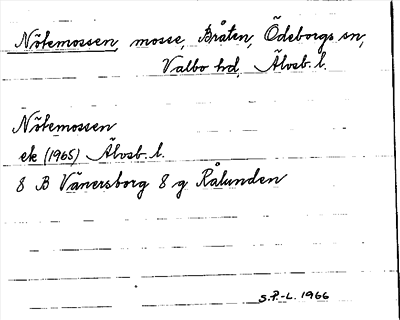 Nötemossen, mosse, Bråten, Ödeborgs sn,
Valbo hd, Älvsb. l.
Nötemossen
ek (1965) Älvsb. l.
8 B Vänersborg 8 g Rålunden
S.P.-L. 1966